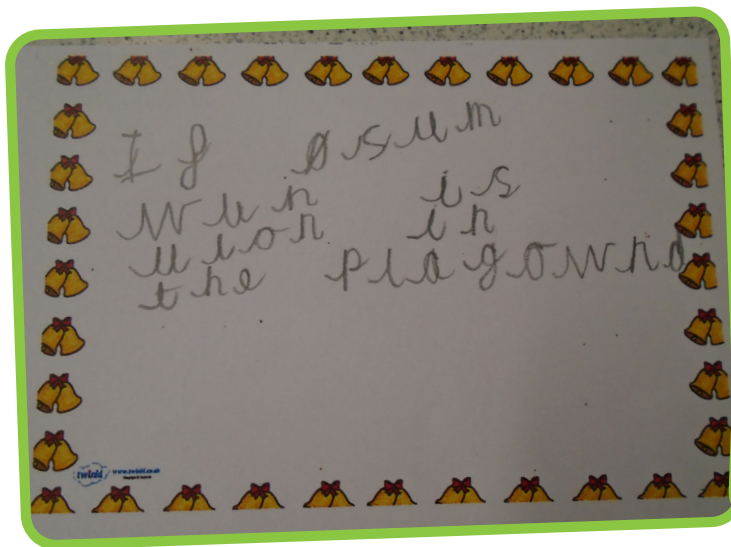 If osum
wun is
uion in
the plagownd
twinkl
www.twinkl.co.uk